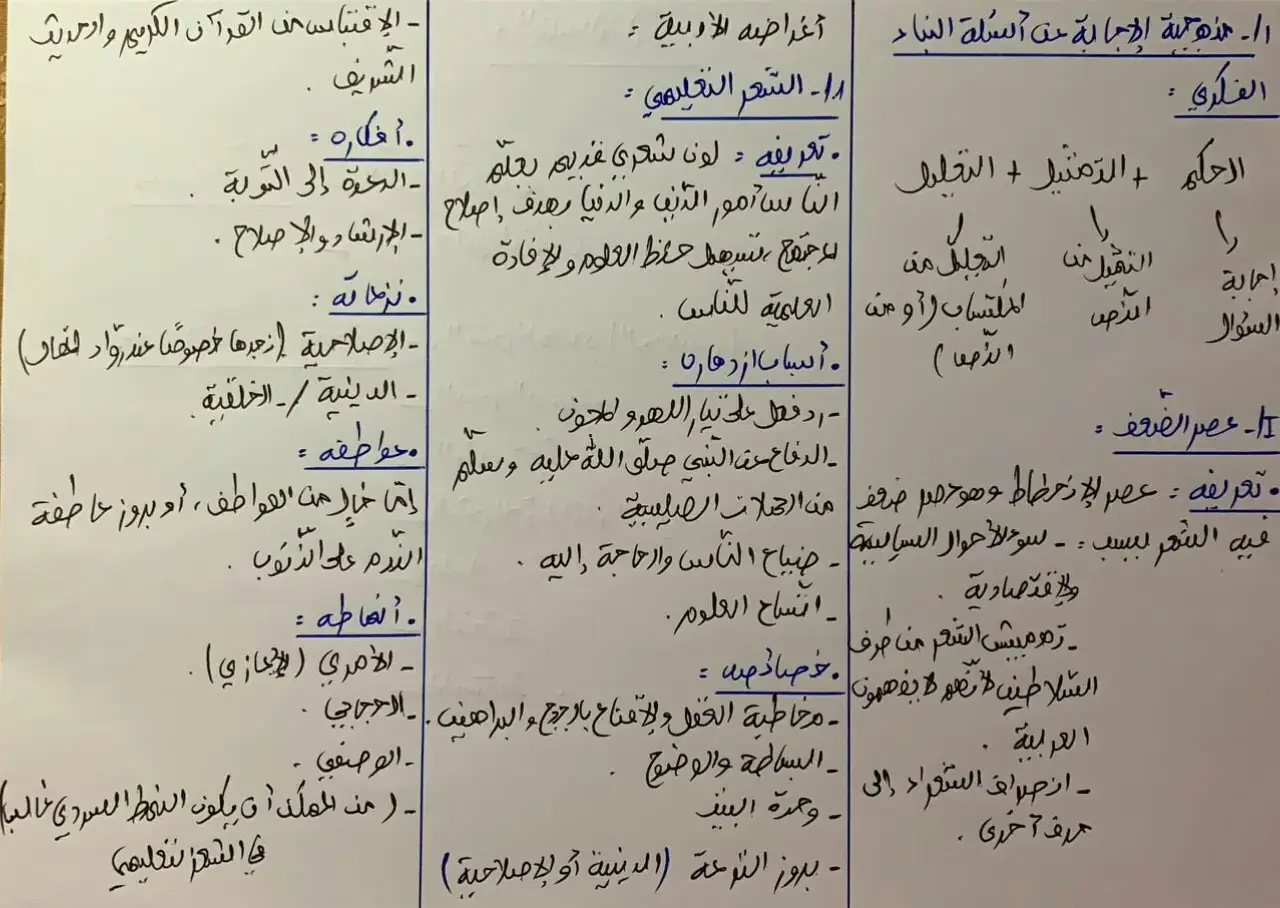 I/- منهجية الإجابة عن أسئلة البناء
الفكري :
الحكم + التمثيل + التعليل
إجابة
السؤال
التمثيل من
النّص
التعليل من
المكتسبات (أو من
النّص)
II/- عصر الضّعف :
• تعريفه : عصر الإنحطاط وهو عصر ضعف
فيه الشعر بسبب : - سوء الأحوال السياسية
والإقتصادية .
- تهميش الشعر من طرف
السّلاطين لأنّهم لا يفهمون
العربية .
- انصراف الشعراء إلى
حرف أخرى .
أغراضه الأدبية :
1/- الشعر التعليمي :
• تعريفه : لون شعري قديم يعلّم
النّاس أمور الدّين والدّنيا بهدف إصلاح
المجتمع ، تسهيل حفظ العلوم والإفادة
العلمية للنّاس .
• أسباب ازدهاره :
- رد فعل على تيار اللهو والمجون .
- الدفاع عن النّبي صلّى اللّه عليه وسلّم
من الحملات الصليبية .
- ضياع النّاس والحاجة إليه .
- اتّساع العلوم .
• خصائصه :
- مخاطبة العقل والإقناع بالحجج والبراهين .
- البساطة والوضوح .
- وحدة البيت
- بروز النزعة (الدينية أو الإصلاحية)
- الإقتباس من القرآن الكريم والحديث
الشّريف .
• أفكاره :
- الدعوة إلى التّوبة .
- الإرشاد والإصلاح .
• نزعاته :
- الإصلاحية (نجدها خصوصًا عند روّاد المقال)
- الدينية / - الخلقية .
• عواطفه :
إمّا خالٍ من العواطف ، أو بروز عاطفة
النّدم على الذّنوب .
• أنماطه :
- الأمري (الإيعازي) .
- الحجاجي .
- الوصفي .
- (من الممكن أن يكون النمط السردي غالبا)
في الشعر التعليمي